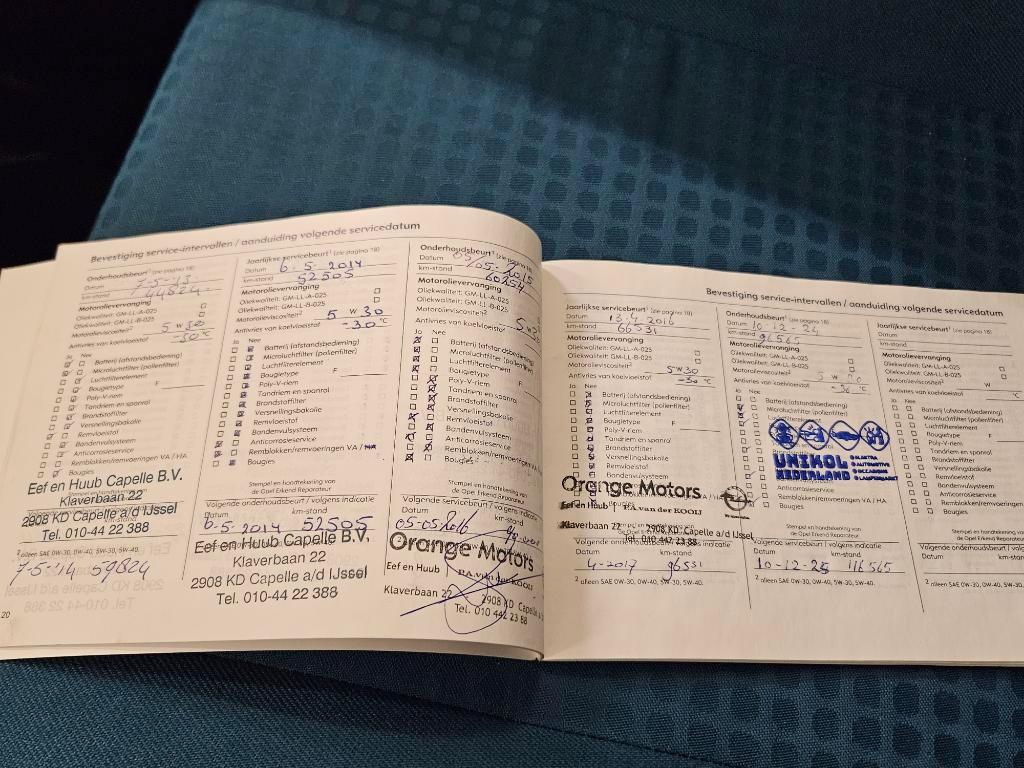 Bevestiging service-intervallen / aanduiding volgende servicedatum
Onderhoudsbeurt¹ (zie pagina 18)
Datum 7-5-13
km-stand 44824
Motorolievervanging
Oliekwaliteit: GM-LL-A-025
Oliekwaliteit: GM-LL-B-025
Motorolieviscositeit²
5 W 30
Antivries van koelvloeistof
-30°C
Ja Nee
Batterij (afstandsbediening)
Microluchtfilter (pollenfilter)
Luchtfilterelement
Bougietype
Poly-V-riem
Tandriem en spanrol
Brandstoffilter
Versnellingsbakolie
Remvloeistof
Bandenvulsysteem
Anticorrosieservice
Remblokken/remvoeringen VA / HA
Bougies
Eef en Huub Capelle B.V.
Klaverbaan 22
2908 KD Capelle a/d IJssel
Tel. 010-44 22 388
² alleen SAE 0W-30, 0W-40, 5W-30, 5W-40.
7-5-'14 59824
20
Jaarlijkse servicebeurt¹ (zie pagina 18)
Datum 6-5-2014
km-stand 52505
Motorolievervanging
Oliekwaliteit: GM-LL-A-025
Oliekwaliteit: GM-LL-B-025
Motorolieviscositeit² 5 W 30
Antivries van koelvloeistof -30°C
Ja Nee
Batterij (afstandsbediening)
Microluchtfilter (pollenfilter)
Luchtfilterelement
Bougietype F
Poly-V-riem
Tandriem en spanrol
Brandstoffilter
Versnellingsbakolie
Remvloeistof
Bandenvulsysteem
Anticorrosieservice
Remblokken/remvoeringen VA /
Bougies
Stempel en handtekening van
de Opel Erkend Reparateur
Volgende onderhoudsbeurt / volgens indicatie
Datum km-stand
6-5-2014 52505
Eef en Huub Capelle B.V.
Klaverbaan 22
2908 KD Capelle a/d IJssel
Tel. 010-44 22 388
Onderhoudsbeurt¹ (zie pagina 18)
Datum 05/05-2015
km-stand 60254
Motorolievervanging
Oliekwaliteit: GM-LL-A-025
Oliekwaliteit: GM-LL-B-025
Motorolieviscositeit²
Antivries van koelvloeistof
Ja Nee
Batterij (afstandsbediening)
Microluchtfilter (pollenfilter)
Luchtfilterelement
Bougietype F
Poly-V-riem
Tandriem en spanrol
Brandstoffilter
Versnellingsbakolie
Remvloeistof
Bandenvulsysteem
Anticorrosieservice
Remblokken/remvoeringen VA
Bougies
Stempel en handtekening van
de Opel Erkend Reparateur
Volgende servicebeurt / volgens indicatie
Datum km-stand
05-05-2016
Orange Motors
Eef en Huub P.A. van der KOOIJ
Klaverbaan 22 2908 KD Capelle
Tel. 010-442 23 88
Bevestiging service-intervallen / aanduiding volgende servicedatum
Jaarlijkse servicebeurt¹ (zie pagina 18)
Datum 13-4-2016
km-stand 66531
Motorolievervanging
Oliekwaliteit: GM-LL-A-025
Oliekwaliteit: GM-LL-B-025
Motorolieviscositeit² 5 W 30
Antivries van koelvloeistof -30 °C
Ja Nee
Batterij (afstandsbediening)
Microluchtfilter (pollenfilter)
Luchtfilterelement
Bougietype F
Poly-V-riem
Tandriem en spanrol
Brandstoffilter
Versnellingsbakolie
Remvloeistof
Orange Motors
Eef en Huub P.A. van der KOOIJ
Klaverbaan 22 2908 KD Capelle a/d IJssel
Tel. 010-442 23 88
Datum km-stand
4-2017 96531
² alleen SAE 0W-30, 0W-40, 5W-30, 5W-40.
Onderhoudsbeurt¹ (zie pagina 18)
Datum 10-12-24
km-stand 96565
Motorolievervanging
Oliekwaliteit: GM-LL-A-025
Oliekwaliteit: GM-LL-B-025
Motorolieviscositeit²
Antivries van koelvloeistof
Ja Nee
Batterij (afstandsbediening)
Microluchtfilter (pollenfilter)
UNIKOL
NEDERLAND
ELEKTRA
AUTOMOTIVE
OCCASIONS
Anticorrosieservice
Remblokken/remvoeringen VA / HA
Bougies
Stempel en handtekening van
de Opel Erkend Reparateur
Volgende servicebeurt / volgens indicatie
Datum km-stand
10-12-25 116565
² alleen SAE 0W-30, 0W-40, 5W-30, 5W-40.
Jaarlijkse servicebeurt¹ (zie pagina 18)
Datum
km-stand
Motorolievervanging
Oliekwaliteit: GM-LL-A-025
Oliekwaliteit: GM-LL-B-025
Motorolieviscositeit² W
Antivries van koelvloeistof
Ja Nee
Batterij (afstandsbediening)
Microluchtfilter (pollenfilter)
Luchtfilterelement
Bougietype F
Poly-V-riem
Tandriem en spanrol
Brandstoffilter
Versnellingsbakolie
Remvloeistof
Bandenvulsysteem
Anticorrosieservice
Remblokken/remvoeringen
Bougies
Stempel en handtekening
de Opel Erkend Reparateur
Volgende onderhoudsbeurt / volgens
Datum km-stand
² alleen SAE 0W-30, 0W-40, 5W-30, 5W-40.